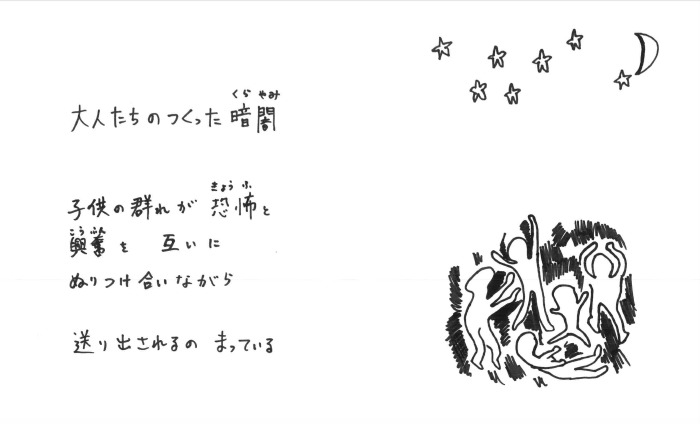 大人たちのつくった暗闇
くらやみ
子供の群れが恐怖と
きょうふ
興奮を 互いに
こうふん
ぬりつけ合いながら
送り出されるの まっている